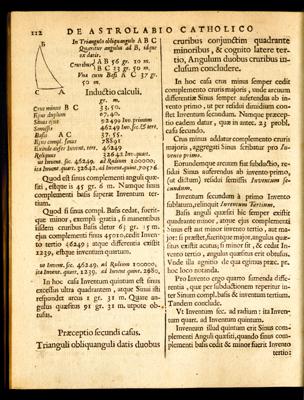 112 DE ASTROLABIO CATHOLICO
In Triangulo obliquangulo A B C
Quæritur angulus ad B, idque
ex datis.
Cruribus A B 56 gr. 10 m.
B C 33 gr. 50 m.
Vna cum Basi A C 37 gr.
50 m.
Inductio calculi.
gr. m.
Crus minus B C 33. 50.
Sinus ejus
Semissis
Basis A C 37. 55.
Ejus compl. sinus 78891
Reliquus
ut Invent. sec. 46249. ad Radium 100000,
ita Invent. quart. 32642. ad Invent. quint.
Quod est sinus complementi anguli quæ-
siti, estque is 45 gr. 6 m. Namque sinus
complementi basis superat Inventum ter-
tium.
Quod si sinus compl. Basis cedat, fueritque
minor, exempli gratia, si manentibus
iisdem cruribus Basis detur 63 gr. 15 m.
ejus complementi sinus 45010, cedit Inven-
to tertio 46249; atque differentia existit
1239, estque inventum quintum.
ut Invent. sec. 46249. ad Radium 100000,
ita Invent. quart. 1239. ad Invent. quint. 2680,
In hoc casu Inventum quintum est sinus
excessus ultra quadrantem, atque Sinui isti
respondet arcus 1 gr. 31 m. Quare an-
gulus quæsitus 91 gr. 31 m. utpote ob-
tusus.
Præceptio secundi casus.
Trianguli obliquanguli datis duobus
cruribus conjunctim quadrante
minoribus, & cognito latere ter-
tio, Angulum duobus cruribus in-
clusum concludere.
In hoc casu crus minus semper cedit
complemento cruris majoris, unde arcuum
differentiæ Sinus semper auferendus ab in-
vento primo, ut per residui dimidium con-
stet Inventum secundum. Namque præcep-
tio eadem datur, quæ in antec. 25 probl.
casu secundo.
Crus minus addatur complemento cruris
majoris, aggregati Sinus scribatur pro In-
vento primo.
Eorundemque arcuum fiat subductio, re-
sidui Sinus auferendus ab invento primo,
(ut dictum) residui semissis Juventum se-
cundum.
Inventum secundum à primo Invento
sublatum, relinquit Inventum Tertium.
Basis anguli quæsiti hic semper existit
quadrante minor, atque ejus complementi
Sinus est aut minor invento tertio, aut ma-
jor: si præstet, fueritque major, angulus quæ-
situs existit acutus; si minor sit, & cedat In-
vento tertio, angulus quæsitus erit obtusus.
Unde illa agnitio de qua egimus præc. pr.
hæc loco notanda.
Pro Invento ergo quarto sumenda diffe-
rentia, quæ per subductionem reperitur in-
ter Sinum compl. basis & inventum tertium:
Tandem conclude.
Vt Inventum sec. ad radium: ita Inven-
tum quart. ad Inventum quintum.
Inventum illud quintum erit Sinus com-
plementi Anguli quæsiti, quando sinus com-
plementi basis cedit & minor fuerit Invento
tertio: